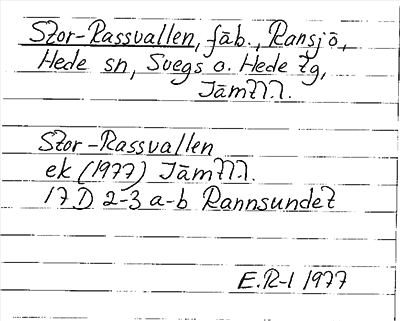 Stor-Rassvallen, fäb., Ransjö,
Hede sn, Svegs o. Hede tg,
Jämtl.
Stor-Rassvallen
ek (1977) Jämtl.
17 D 2-3 a-b Rannsundet
E.R-l 1977